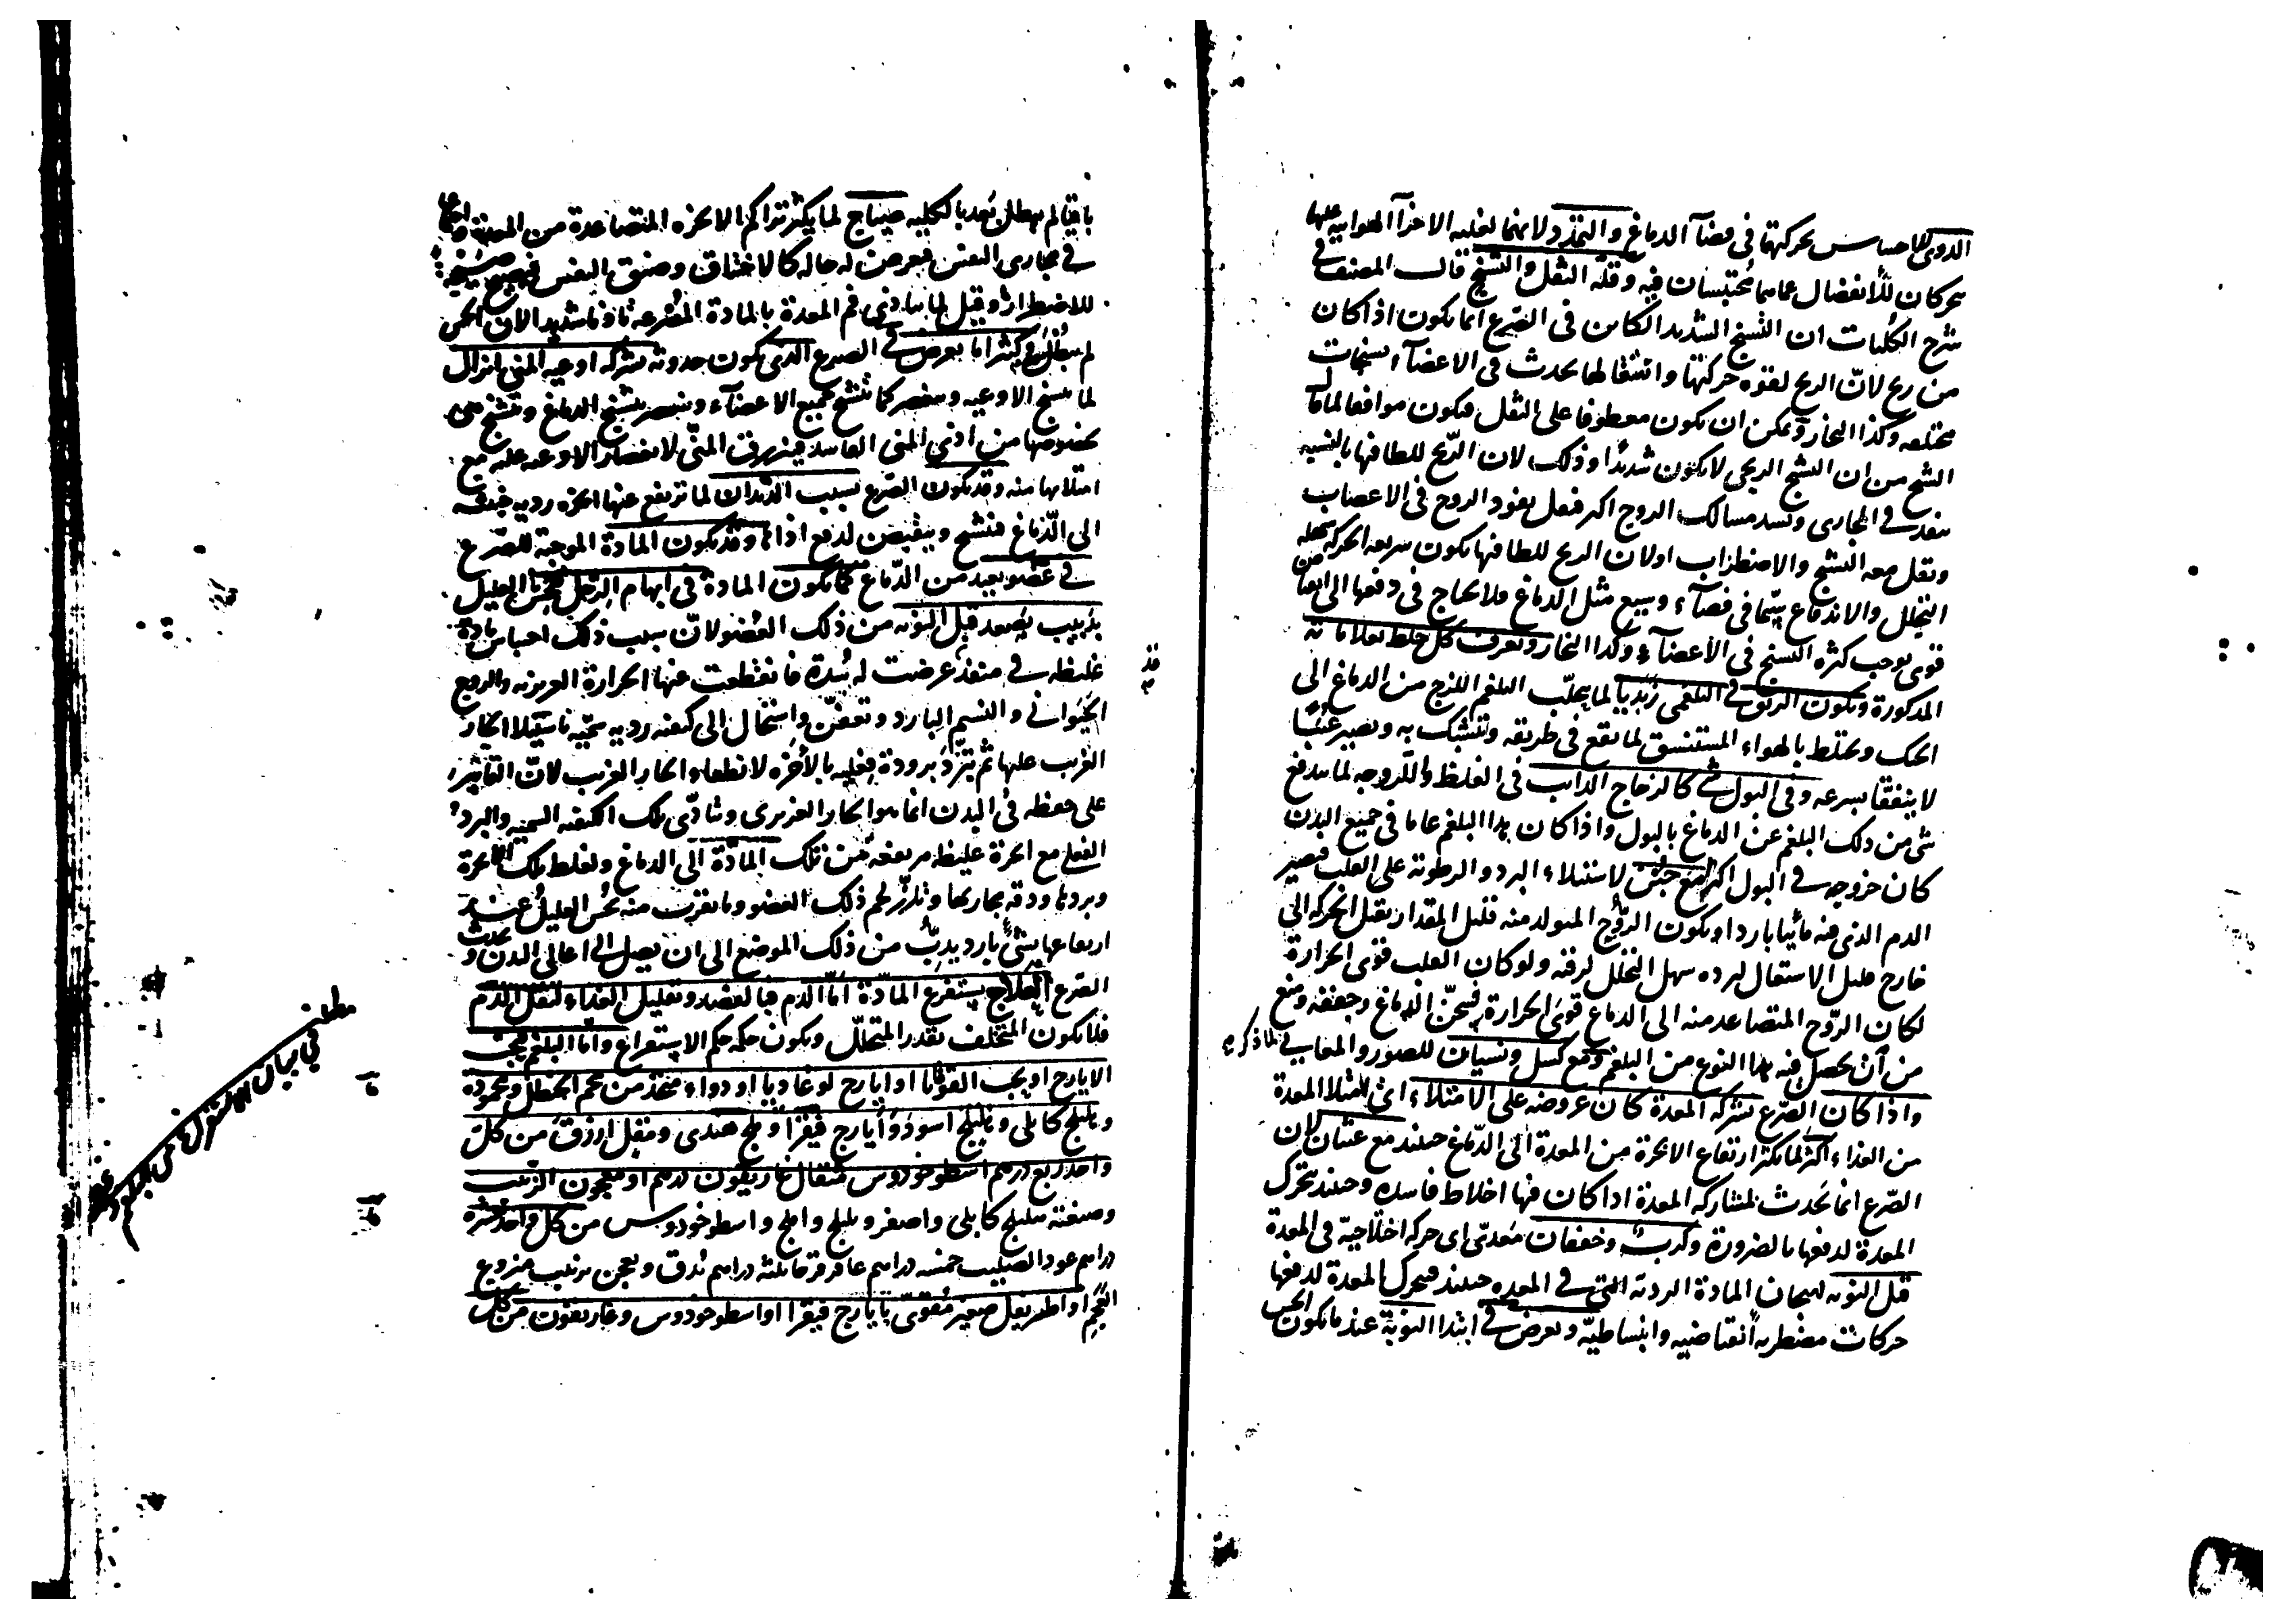 الدوى للاحساس بحركتها فى فضآ الدماغ والتمدد لانهما لغلبه الاجزآ الهوايه عليها
يتحركان للانفصال عما هما محتبسان فيه وقلة الثقل والتشنج قال المصنف فى
شرح الكليات ان التشنج الشديد الكاىن فى الصرع انما يكون اذا كان
من ريح لانّ الريح لقوه حركتها وانتقالها يحدث فى الاعضآء تشنجات
مختلفه وكذا البخار ويمكن ان يكون معطوفا على الثقل فيكون موافقا لما قال
الشيخ من ان التشنج الريحى لا يكون شديدًا وذلك لان الرّيح للطافتها بالنسبه
تنفذ فى المجارى وتسد مسالك الروح اكثر فيقل نفوذ الروح فى الاعصاب
ويقل معه التشنج والاضطراب او لان الريح للطافتها يكون سريعه الحركه سهله
التحلل والاندفاع سيّما فى فضآء وسيع مثل الدماغ فلا يحتاج فى دفعها الى انقباض
قوى يوجب كثره التشنج فى الاعضآء وكذا البخار ويعرف كل خلط بعلاماته
المذكورة ويكون الريق فى البلغمى زبديا لما يتحلّب البلغم اللزج من الدماغ الى
الحنك ويختلط بالهواء المستنشق لما يقع فى طريقه ويتشبك به ويصير
لا ينفقا بسرعه وفى البول شئ كالزجاج الذائب فى الغلظ واللزوجه لما يندفع
شئ من ذلك البلغم عن الدماغ بالبول واذا كان هذا البلغم عاما فى جميع البدن
كان خروجه فى البول اكثر مع جبن لاستيلاء البرد والرطوبة على القلب فيصير
الدم الذى فيه مائيا باردا ويكون الرّوح المتولد منه قليل المقدار ثقيل الحركه الى
خارج قليل الاشتعال لبرده سهل التحلل لرقته ولو كان القلب قوى الحرارة
لكان الرّوح المتصاعد منه الى الدماغ قوى الحرارة فيسخّن الدماغ وجففه ومنع
من أن يحصل فيه هذا النوع من البلغم ومع كسل ونسيان للصور والمعانى لما ذكره
واذا كان الصّرع بشركه المعدة كان عروضه على الامتلاء اى امتلاء المعدة
من الغذاء اكثر لما يكثر ارتفاع الابخرة من المعدة الى الدّماغ حينئذ مع غثيان لان
الصّرع انما يحدث بمشاركه المعدة اذا كان فيها اخلاط فاسده وحينئذ يتحرك
المعدة لدفعها بالضرورة وكرب وخفقان معدىّ اى حركه اختلاجيّه فى المعدة
قبل النوبه لهيجان المادة الرديه التى فى المعده حينئذ فيتحرك المعدة لدفعها
حركات مضطربه انقباضيه وانبساطيّه ويعرض فى ابتدا النوبة عند ما يكون الحس
باقيا لم يبطل بعد بالكليه صياح لما يكثر تراكم الابخره المتصاعدة من المعدة
فى مجارى النفس فيعرض له حاله كالاختناق وضيق النفس فيصيح
للاضطرار وقيل لما يتاذى فم المعدة بالمادة المصرعه تاذيا شديدا لان الحس
لم يبطل وكثيرا ما يعرض فى الصرع الذى يكون حدوثه بشركه اوعيه المنى انزال
لما يتشنج الاوعيه وينعصر كما يتشنج جميع الاعضآء وينعصر بتشنج الدماغ وتشنج هى
بخصوصها من اذى المنى الفاسد فينزرق المنى لانعصار الاوعيه عليه مع
امتلائها منه وقد يكون الصّرع بسبب الديدان لما ترتفع عنها ابخره رديه خبيثه
الى الدّماغ فيتشنج وينقبض لدفع اذاها وقد يكون المادة الموجبة للصّرع
فى عضو بعيد من الدّماغ كما يكون المادة فى ابهام الرجل فيحس العليل
بدبيب يصعد قبل النوبه من ذلك العضو لانّ سبب ذلك احتباس مادة
غليظه فى منفذ عرضت له سدة فانقطعت عنها الحرارة الغريزيه والروح
الحيوانى والنسيم البارد وتعفن واستحال الى كيفيه رديه سمّيه باستيلاء الحار
الغريب عليها ثم تبرّد برودة فعليه بالأخره لانطفاء الحار الغريب لانّ القائم
على حفظه فى البدن انما هو الحار الغريزى وتتادّى تلك الكيفيه السميه والبرد
الفعلى مع ابخرة غليظه مرتفعه من تلك المادة الى الدماغ ولغلظ تلك الابخرة
وبردها ودقه مجاريها وتلزز لحم ذلك العضو وما يقرب منه يحس العليل عند
ارتفاعها بشئ بارد يدبّ من ذلك الموضع الى ان يصل الى اعالى البدن ويحدث
الصّرع العلاج يستفرغ المادّة امّا الدم فبالفصد وتقليل الغذاء لتقل الدم
فلا يكون المتخلف بقدر المتحلّل ويكون حكمه حكم الاستفراغ وامّا البلغم فبحب
الايارج او بحب القوقايا او ايارج لوغاديا او دواء متخذ من شحم الحنظل ومحموده
وهليلج كابلى وهليلج اسود وأيارج فيقرا وملح هندى ومقل ازرق من كل
واحد ربع درهم اسطوخودوس مثقال غاريقون درهم او معجون الزبيب
وصفته هليلج كابلى واصفر وبليلج واملج واسطوخودوس من كل واحد عشره
دراهم عود الصليب خمسه دراهم عاقرقرحا ثلثه دراهم يدق ويعجن بزبيب منزوع
العجم او اطريفل صغير مقوّى بايارج فيقرا او اسطوخودوس وغاريقون من كل
مطلب
فى بيان